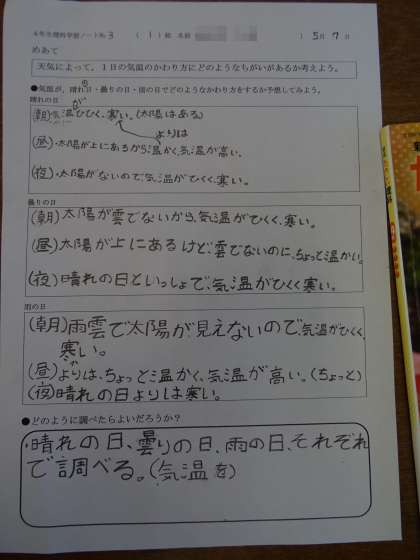 4年生理科学習ノート№3 (1)組 名前 ( ) 5月7日
めあて
天気によって、1日の気温のかわり方にどのようなちがいがあるか考えよう。
●気温が、晴れの日・曇りの日・雨の日でどのようなかわり方をするか予想してみよう。
晴れの日
(朝)気温がひくく、寒い。(太陽はある)
よりは
(昼)・太陽が上にあるから、温かく、気温が高い。
(夜)・太陽がないので、気温がひくく、寒い。
曇りの日
(朝)太陽が雲でないから、気温がひくく、寒い。
(昼)太陽が上にあるけど、雲でないのに、ちょっと温かい。
(夜)晴れの日といっしょで、気温がひくく寒い。
雨の日
(朝)雨雲で太陽が見えないので、気温がひくく、
寒い。
(昼)よりは、ちょっと温かく、気温が高い。(ちょっと)
(夜)晴れの日よりは寒い。
●どのように調べたらよいだろうか?
・晴れの日、曇りの日、雨の日、それぞれ
で調べる。(気温を)